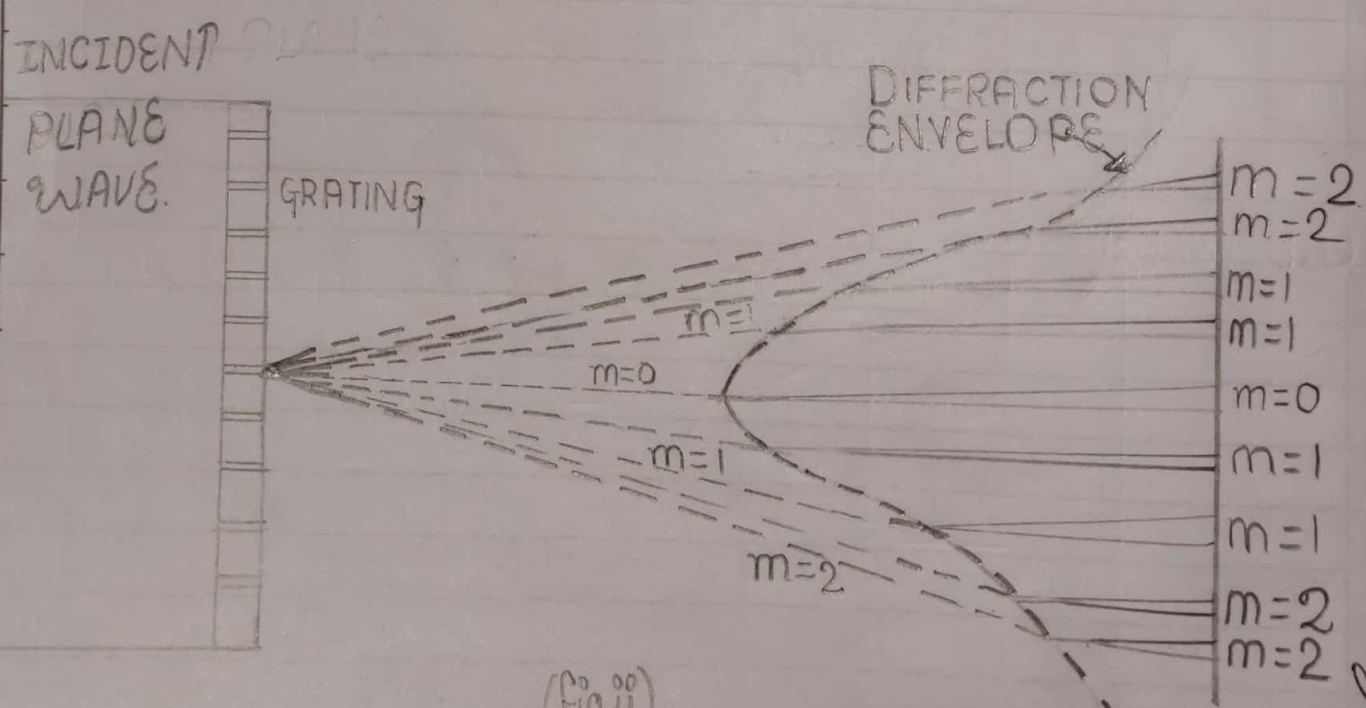 INCIDENT
PLANE
WAVE.
GRATING
DIFFRACTION
ENVELOPE
m=2
m=2
m=1
m=1
m=1
m=0
m=0
m=1
m=1
m=1
m=2
m=2
m=2
(fig ii)